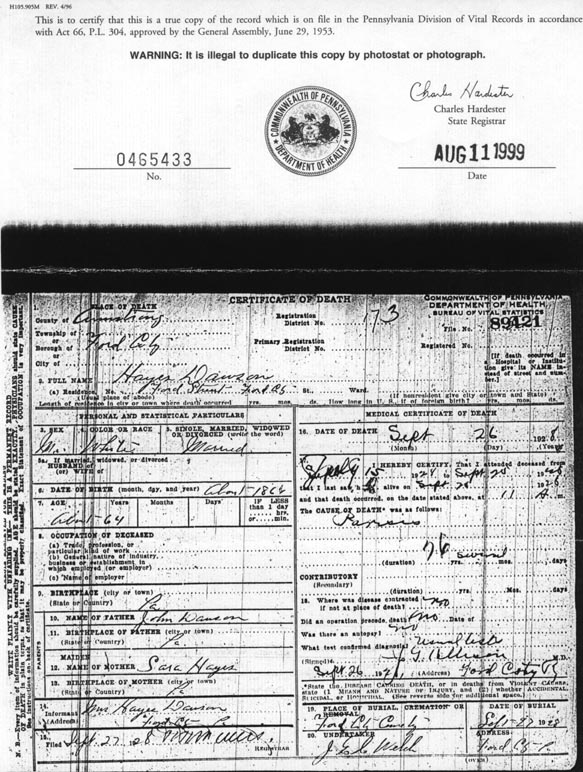 H105.905M REV. 4/96
This is to certify that this is a true copy of the record which is on file in the Pennsylvania Division of Vital Records in accordance
with Act 66, P.L. 304, approved by the General Assembly, June 29, 1953.
WARNING: It is illegal to duplicate this copy by photostat or photograph.
COMMONWEALTH OF PENNSYLVANIA
DEPARTMENT OF HEALTH
Charles Hardester
Charles Hardester
State Registrar
0465433
No.
AUG 11 1999
Date
CERTIFICATE OF DEATH
COMMONWEALTH OF PENNSYLVANIA
DEPARTMENT OF HEALTH
BUREAU OF VITAL STATISTICS
PLACE OF DEATH
County of Armstrong
Township of
or
Borough of Ford City
or
City of
Registration
District No. 173
Primary Registration
District No.
File No. 89421
Registered No.
[If death occurred in
a Hospital or Institu-
tion give its NAME in-
stead of street and num-
ber.]
2. FULL NAME Hayes Dawson
(a) Residence, No. Ford City St., Ward.
(Usual place of abode)
(If nonresident give city or town and State)
Length of residence in city or town where death occurred yrs. mos. ds. How long in U. S., if of foreign birth? yrs. mos. ds.
PERSONAL AND STATISTICAL PARTICULARS
3. SEX
4. COLOR OR RACE
5. SINGLE, MARRIED, WIDOWED
OR DIVORCED (write the word)
M. White Married
5a. If married, widowed, or divorced
HUSBAND of
(or) WIFE of
6. DATE OF BIRTH (month, day, and year) About
7. AGE Years Months Days
IF LESS
than 1 day
hrs.
or min.
About 64
8. OCCUPATION OF DECEASED
(a) Trade, profession, or
particular kind of work
(b) General nature of industry,
business or establishment in
which employed (or employer)
(c) Name of employer
9. BIRTHPLACE (city or town)
(State or Country) Pa
10. NAME OF FATHER John Dawson
11. BIRTHPLACE OF FATHER (city or town)
(State or Country) Pa
12. MAIDEN
NAME OF MOTHER Sara Hayes
13. BIRTHPLACE OF MOTHER (city or town)
(State or Country) Pa
PARENTS
14.
Informant Mrs Hayes Dawson
(Address) Ford City Pa
15.
Filed Sept 27 28
REGISTRAR
MEDICAL CERTIFICATE OF DEATH
16. DATE OF DEATH Sept 26 1928
(Month) (Day) (Year)
17.
I HEREBY CERTIFY, That I attended deceased from
that I last saw h alive on Sept
and that death occurred, on the date stated above, at 11 A m.
The CAUSE OF DEATH* was as follows:
Paresis
(duration) yrs. mos. days
CONTRIBUTORY
(Secondary)
(duration) yrs. Mos. days
18. Where was disease contracted
if not at place of death? No
Did an operation precede death? No. Date of
Was there an autopsy? No
What test confirmed diagnosis?
(Signed) M.D.
Sept. 26 (Address) Ford City Pa
*State the DISEASE CAUSING DEATH, or in deaths from VIOLENT CAUSES,
state (1) MEANS AND NATURE OF INJURY, and (2) whether ACCIDENTAL,
SUICIDAL, or HOMICIDAL. (See reverse side for additional space.)
19. PLACE OF BURIAL, CREMATION OR
REMOVAL
Ford City
DATE OF BURIAL
1928
20. UNDERTAKER
Welch
ADDRESS
Ford City Pa